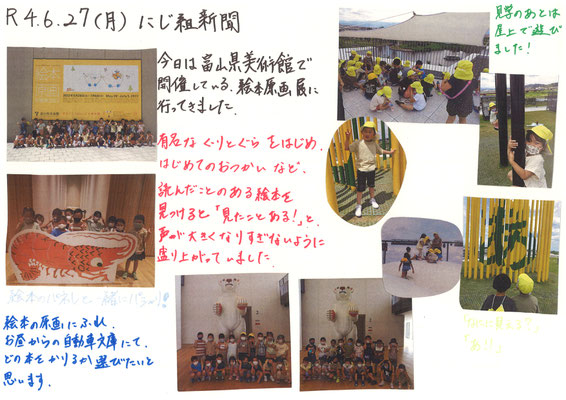 R4.6.27(月) にじ組新聞
今日は富山県美術館で
開催している、絵本原画展に
行ってきました。
有名なぐりとぐらをはじめ、
はじめてのおつかいなど、
読んだことのある絵本を
見つけると「見たことある!」と、
声が大きくなりすぎないように
盛り上がっていました。
絵本のパネルと一緒にパシャリ!
絵本の原画にふれ、
お昼からの自動車文庫にて、
どの本をかりるか選びたいと
思います。
見学のあとは
屋上で遊び
ました!
あ
「何に見える?」
「あ!」